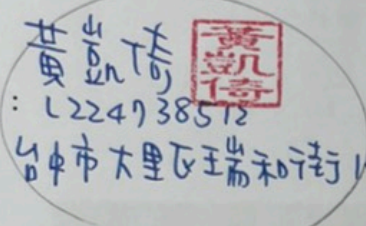 黃凱倚
黃凱倚
: L224738512
台中市大里區瑞和街1